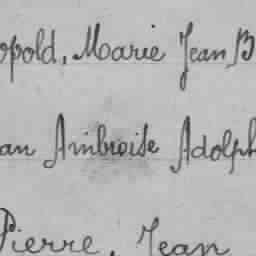 opold, Marie Jean B
an Ambroise Adolph
Pierre, Jean